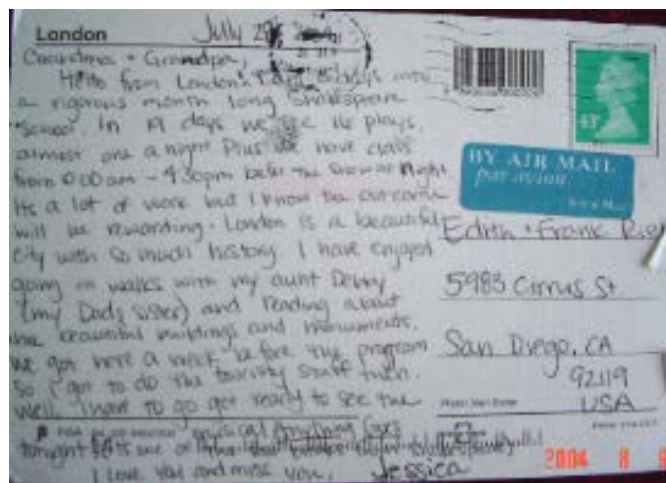 London July 29
Grandma + Grandpa,
Hello from London! days into
a rigorous month long Shakespeare
school. In 19 days we see 16 plays,
almost one a night Plus we have class
from 10:00am - 4:30pm before the show at night
Its a lot of work but I know the outcome
will be rewarding. London is a beautiful
city with so much history I have enjoyed
going on walks with my aunt Debby
(my Dads sister) and reading about
the beautiful buildings and monuments.
We got here a week before the program
So I got to do the touristy stuff then.
Well I have to go get ready to see the
musical Anything Goes
tonight its one of the
I love you and miss you, Jessica
BY AIR MAIL
par avion
Royal Mail
Edith + Frank
5983 Cirrus St
San Diego, CA
92119
USA
2004 8 9